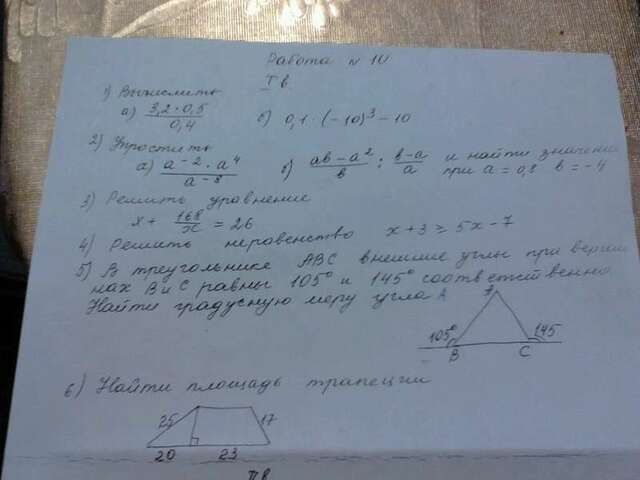 Работа № 10
I в.
1) Вычислить
а) 3,2 · 0,5 / 0,4 б) 0,1 · (-10)³ - 10
2) Упростить
а) a⁻² · a⁴ / a⁻⁸ б) ab - a² / b : b - a / a и найти значение
при a = 0,8 b = -4
3) Решить уравнение
x + 168/x = 26
4) Решить неравенство x + 3 ≥ 5x - 7
5) В треугольнике ABC внешние углы при верши
нах B и C равны 105° и 145° соответственно
Найти градусную меру угла A
A
105° 145
B C
6) Найти площадь трапеции
25 17
20 23
II в